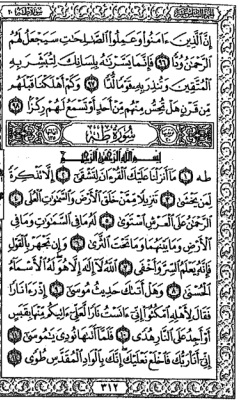 إِنَّ الَّذِينَ ءَامَنُوا وَعَمِلُوا الصَّٰلِحَٰتِ سَيَجْعَلُ لَهُمُ
الرَّحْمَٰنُ وُدًّا ٩٦ فَإِنَّمَا يَسَّرْنَٰهُ بِلِسَانِكَ لِتُبَشِّرَ بِهِ
الْمُتَّقِينَ وَتُنْذِرَ بِهِ قَوْمًا لُّدًّا ٩٧ وَكَمْ أَهْلَكْنَا قَبْلَهُم
مِّن قَرْنٍ هَلْ تُحِسُّ مِنْهُم مِّنْ أَحَدٍ أَوْ تَسْمَعُ لَهُمْ رِكْزًا ٩٨
سُورَةُ طه
بِسْمِ اللَّهِ الرَّحْمَٰنِ الرَّحِيمِ
طه ١ مَا أَنزَلْنَا عَلَيْكَ الْقُرْءَانَ لِتَشْقَىٰ ٢ إِلَّا تَذْكِرَةً
لِّمَن يَخْشَىٰ ٣ تَنزِيلًا مِّمَّنْ خَلَقَ الْأَرْضَ وَالسَّمَٰوَٰتِ الْعُلَى ٤
الرَّحْمَٰنُ عَلَى الْعَرْشِ اسْتَوَىٰ ٥ لَهُ مَا فِي السَّمَٰوَٰتِ وَمَا فِي
الْأَرْضِ وَمَا بَيْنَهُمَا وَمَا تَحْتَ الثَّرَىٰ ٦ وَإِن تَجْهَرْ بِالْقَوْلِ
فَإِنَّهُ يَعْلَمُ السِّرَّ وَأَخْفَى ٧ اللَّهُ لَا إِلَٰهَ إِلَّا هُوَ لَهُ الْأَسْمَاءُ
الْحُسْنَىٰ ٨ وَهَلْ أَتَىٰكَ حَدِيثُ مُوسَىٰ ٩ إِذْ رَءَا نَارًا
فَقَالَ لِأَهْلِهِ امْكُثُوا إِنِّي ءَانَسْتُ نَارًا لَّعَلِّي ءَاتِيكُم مِّنْهَا بِقَبَسٍ
أَوْ أَجِدُ عَلَى النَّارِ هُدًى ١٠ فَلَمَّا أَتَىٰهَا نُودِيَ يَٰمُوسَىٰ ١١
إِنِّي أَنَا رَبُّكَ فَاخْلَعْ نَعْلَيْكَ إِنَّكَ بِالْوَادِ الْمُقَدَّسِ طُوًى ١٢
٣١٢